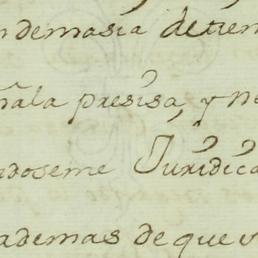 n demasia detien
ñala presisa, y ne
adoseme Juridica
ademas de que v